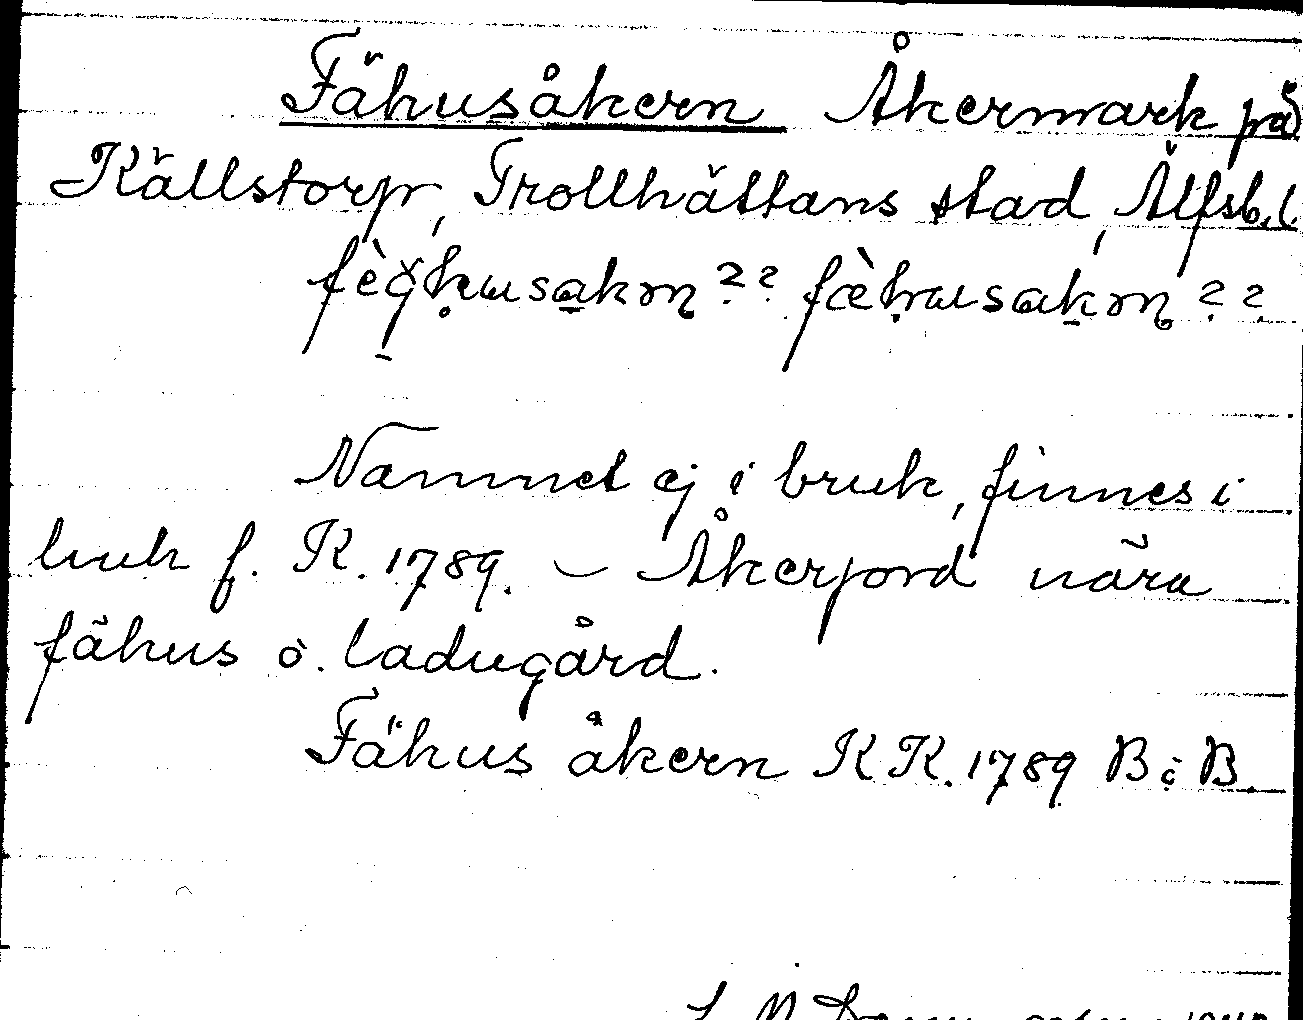 Fähusåkern Åkermark på
Källstorp, Trollhättans stad, Älfsb. l.
Namnet ej i bruk, finnes i
bruk f. K. 1789. – Åkerjord nära
fähus o. ladugård.
Fähus åkern K K. 1789 B : B.